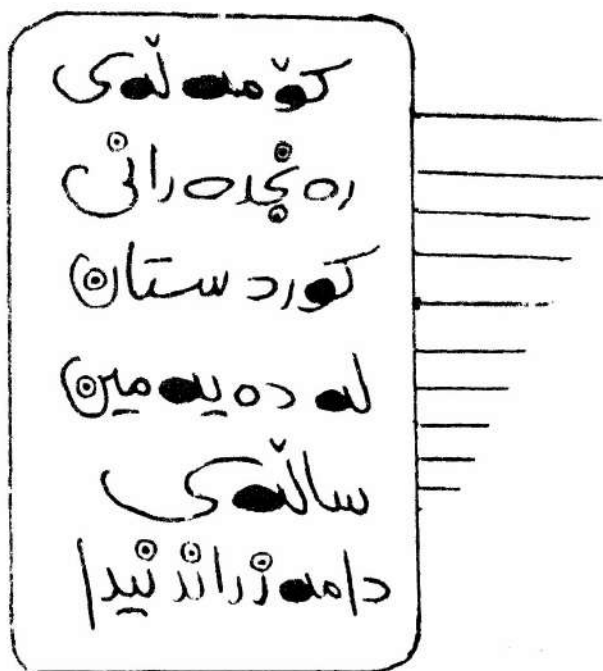 کۆمەڵەی
رەنجدەرانی
کوردستان
لە دەیەمین
ساڵەی
دامەزراندنیدا